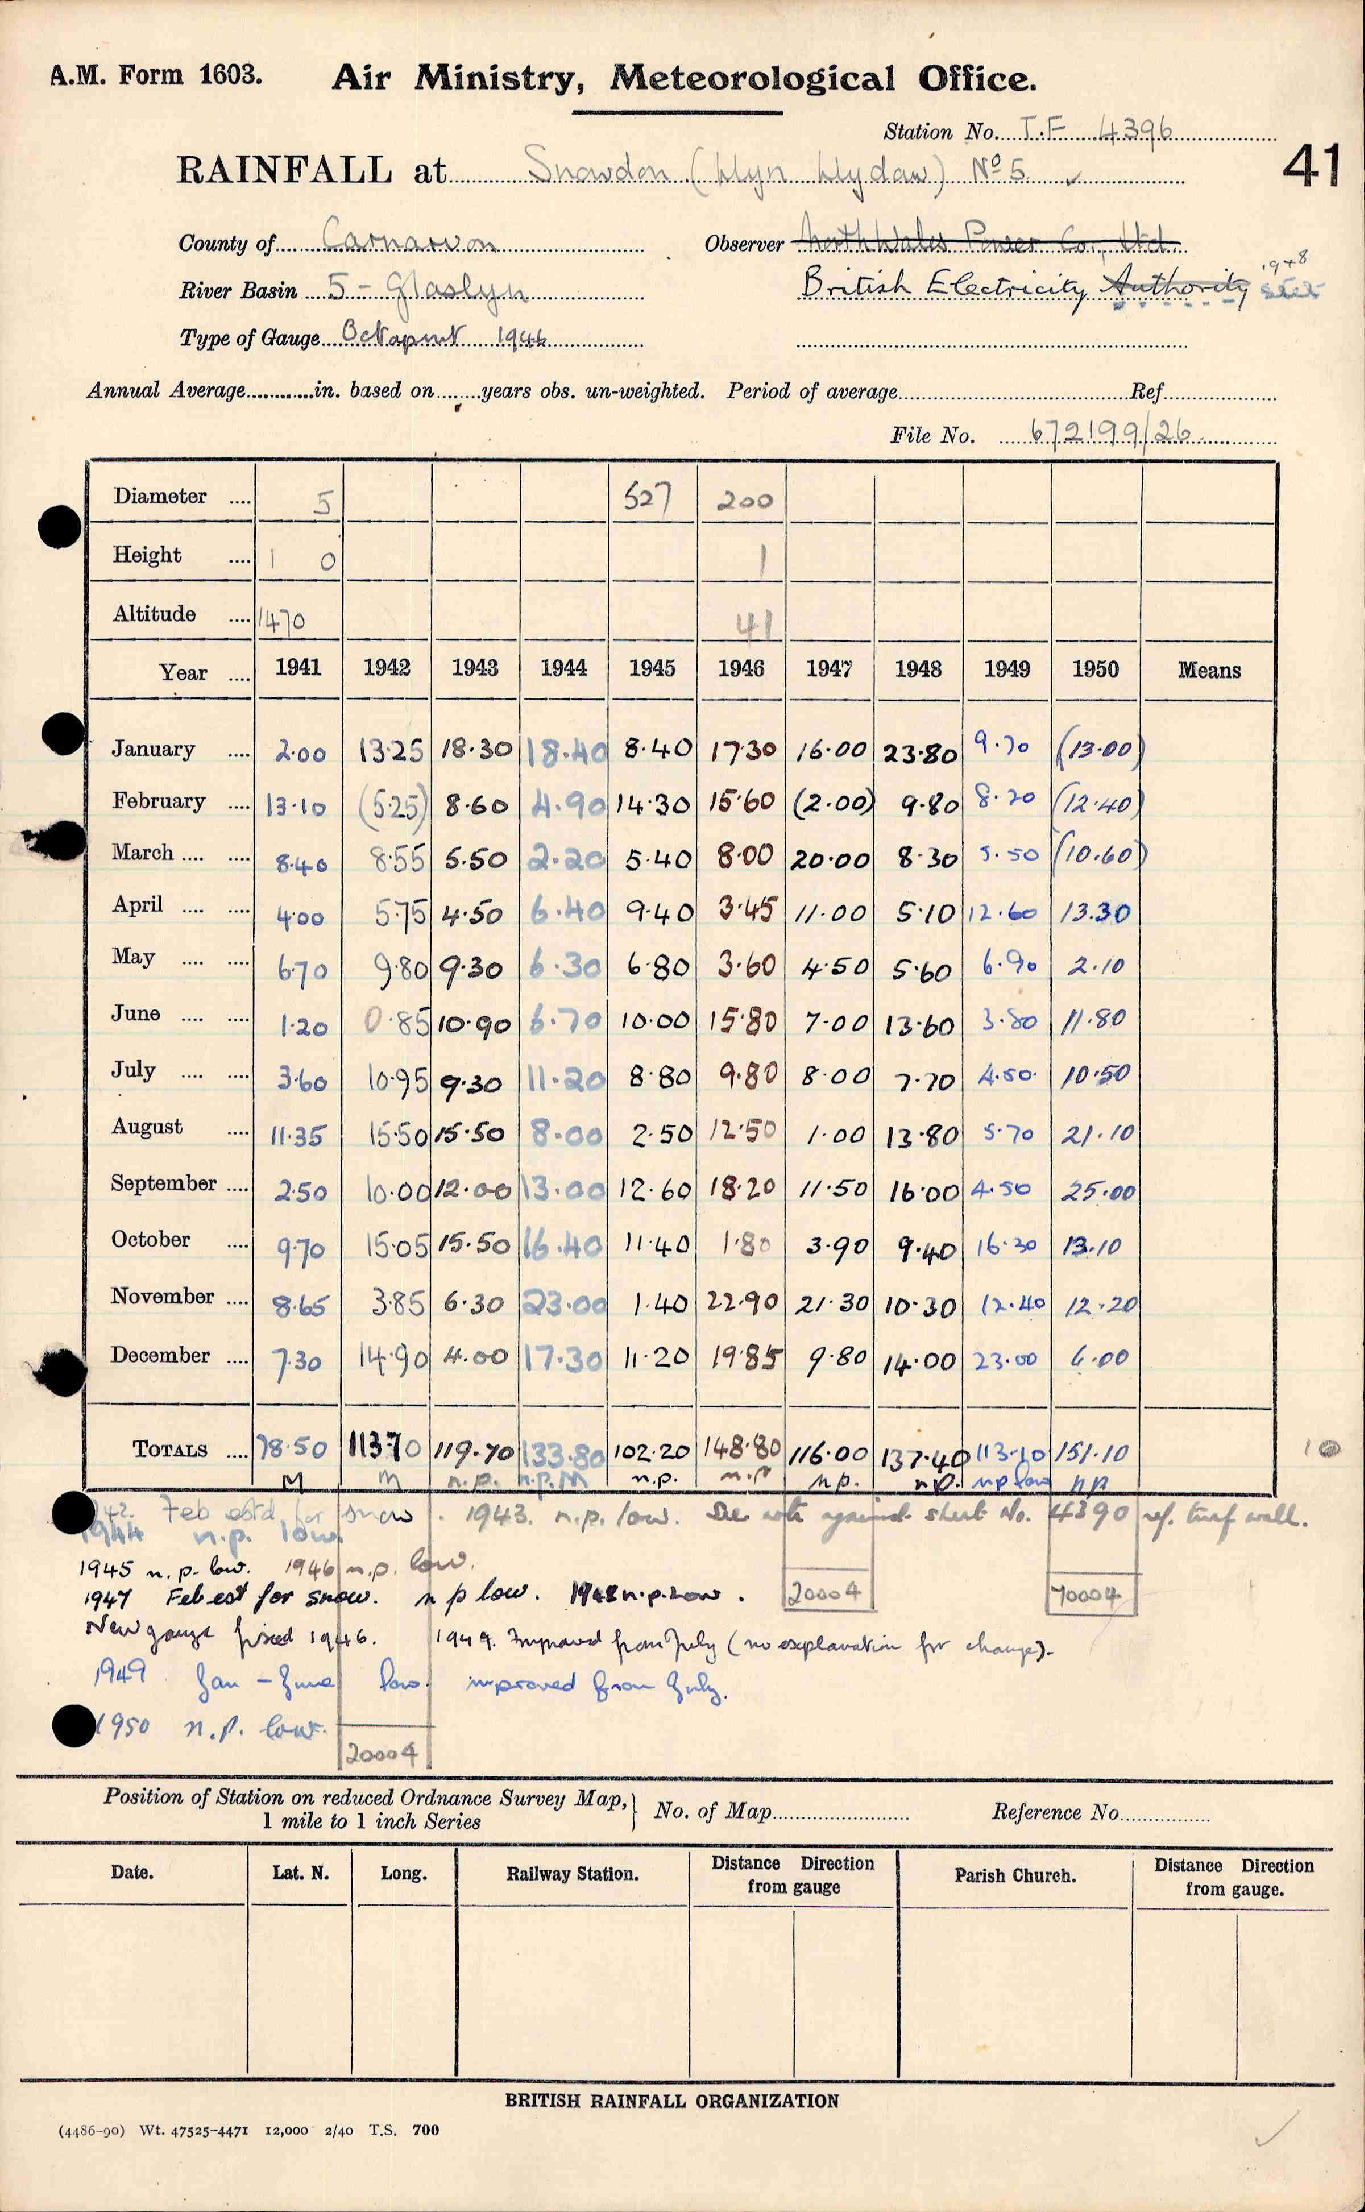 A.M. Form 1603. Air Ministry, Meteorological Office.
Station No. T.F 4396
41
RAINFALL at Snowdon (Llyn Llydaw) No 5 ✓
County of Carnarvon Observer North Wales Power Co., Ltd.
River Basin 5 - Glaslyn British Electricity Authority stet 1948
Type of Gauge Octapent 1946
Annual Average in. based on years obs. un-weighted. Period of average Ref
File No. 672199/26
Diameter 5 527 200
Height 1 0 1
Altitude 1470 41
Year 1941 1942 1943 1944 1945 1946 1947 1948 1949 1950 Means
January 2.00 13.25 18.30 18.40 8.40 17.30 16.00 23.80 9.70 (13.00)
February 13.10 (5.25) 8.60 4.90 14.30 15.60 (2.00) 9.80 8.20 (12.40)
March 8.40 8.55 5.50 2.20 5.40 8.00 20.00 8.30 5.50 (10.60)
April 4.00 5.75 4.50 6.40 9.40 3.45 11.00 5.10 12.60 13.30
May 6.70 9.80 9.30 6.30 6.80 3.60 4.50 5.60 6.90 2.10
June 1.20 0.85 10.90 6.70 10.00 15.80 7.00 13.60 3.80 11.80
July 3.60 10.95 9.30 11.20 8.80 9.80 8.00 7.70 4.50 10.50
August 11.35 15.50 15.50 8.00 2.50 12.50 1.00 13.80 5.70 21.10
September 2.50 10.00 12.00 13.00 12.60 18.20 11.50 16.00 4.50 25.00
October 9.70 15.05 15.50 16.40 11.40 1.80 3.90 9.40 16.30 13.10
November 8.65 3.85 6.30 23.00 1.40 22.90 21.30 10.30 12.40 12.20
December 7.30 14.90 4.00 17.30 11.20 19.85 9.80 14.00 23.00 6.00
TOTALS 78.50 113.70 119.70 133.80 102.20 148.80 116.00 137.40 113.10 151.10 10
M M n.p. n.p.M n.p. n.p n.p. n.p. n p low n p
1942. Feb estd for snow. 1943. n.p. low. See note against sheet No. 4390 ref. turf wall.
1944 n.p. low.
1945 n.p. low. 1946 n.p. low.
1947 Feb est for snow. n p low. 1948 n.p. low. 20004 70004
New gauge fixed 1946. 1949. Improved from July (no explanation for change).
1949 Jan - June low. improved from July.
1950 n.p. low.
20004
Position of Station on reduced Ordnance Survey Map, 1 mile to 1 inch Series No. of Map Reference No.
Date. Lat. N. Long. Railway Station. Distance Direction from gauge Parish Church. Distance Direction from gauge.
BRITISH RAINFALL ORGANIZATION
(4486-90) Wt. 47525-4471 12,000 2/40 T.S. 700